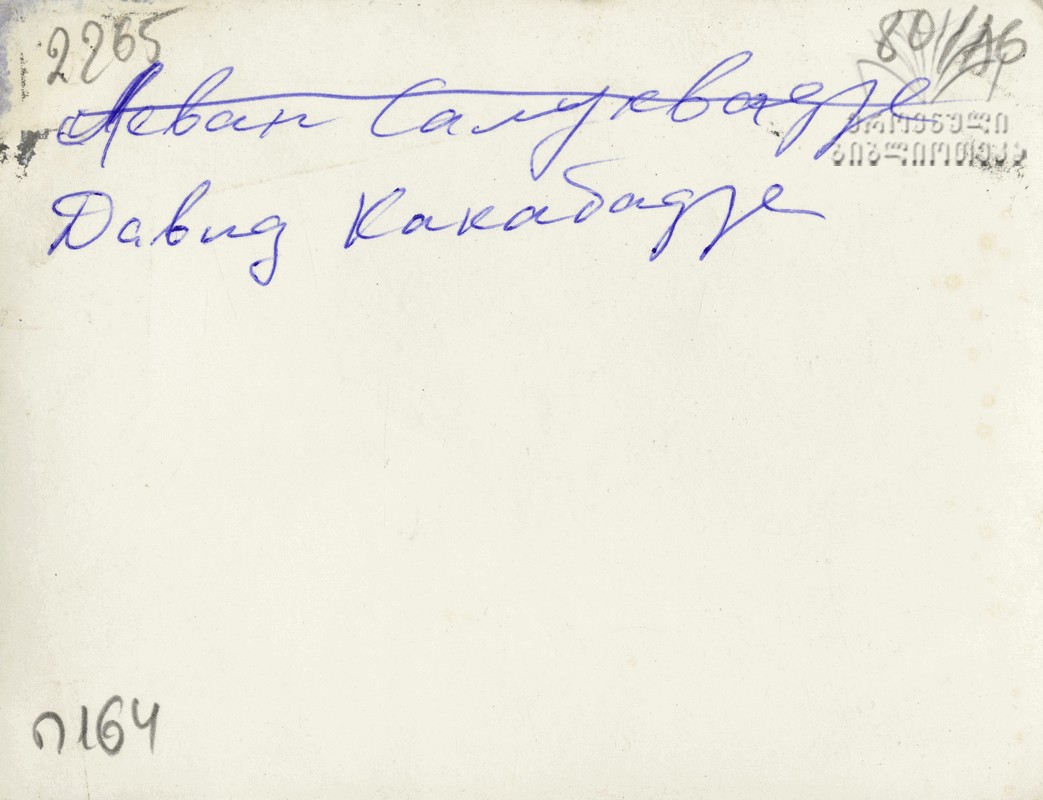 2265
Леван Салуквадзе
ეროვნული
ბიბლიოთეკა
Давид Какабадзе
п164